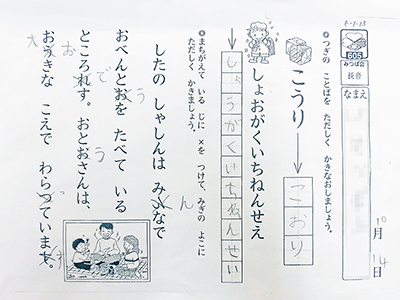 605
みつば会
長音
なまえ
10月
14
●つぎの ことばを ただしく かきなおしましょう。
こうり
こおり
しょおがくいちねんせえ
しょうがくいちねんせい
●まちがえて いる じに ×を つけて、みぎの よこに
ただしく かきましょう。
したの しゃしんは
ん
おべんとおを たべて いる
う
ところれす。おとおさんは、
で う
きな こえで わらっていま。
お